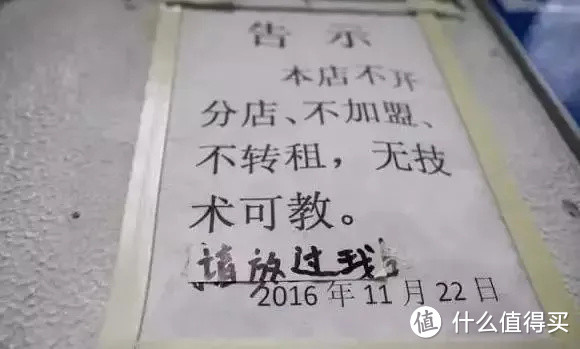 告示
本店不开
分店、不加盟、
不转租，无技
术可教。
请放过我
2016年11月22日
值 什么值得买